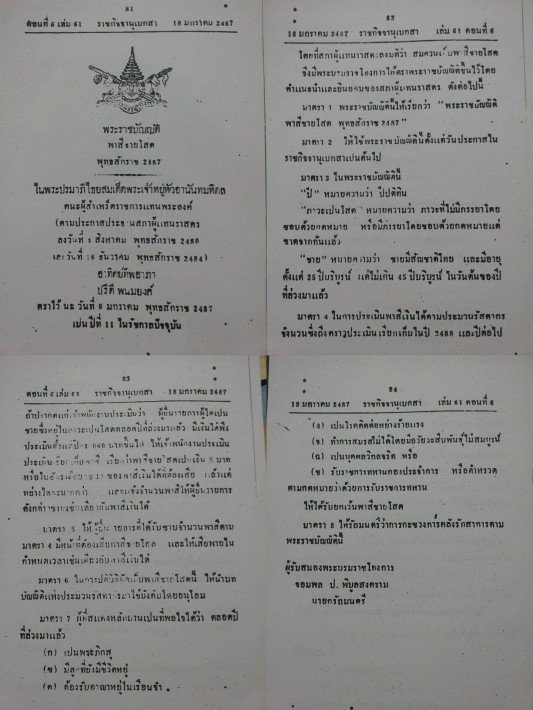 81
ตอนที่ 6 เล่ม 61 ราชกิจจานุเบกสา 18 มกราคม 2487
พระราชบัญญัติ
พาสีชายโสด
พุทธสักราช 2487
ในพระปรมาภิไธยสมเด็ดพระเจ้าหยู่หัวอานันทมหิดล
คนะผู้สำเหร็ดราชการแทนพระองค์
(ตามประกาสประธานสภาผู้แทนราสดร
ลงวันที่ 4 สิงหาคม พุทธสักราช 2480
และวันที่ 16 ธันวาคม พุทธสักราช 2484)
อาทิตย์ทิพอาภา
ปรีดี พนมยงค์
ตราไว้ นะ วันที่ 6 มกราคม พุทธสักราช 2487
เปนปีที่ 11 ในรัชกาลปัจจุบัน
82
18 มกราคม 2487 ราชกิจจานุเบกสา เล่ม 61 ตอนที่ 6
โดยที่สภาผู้แทนราสดรลงมติว่า สมควนเก็บพาสีชายโสด
จึงมีพระบรมราชโองการไห้ตราพระราชบัญญัติขึ้นไว้โดย
คำแนะนำและยินยอมของสภาผู้แทนราสดร ดังต่อไปนี้
มาตรา 1 พระราชบัญญัตินี้ไห้เรียกว่า "พระราชบัญญัติ
พาสีชายโสด พุทธสักราช 2487"
มาตรา 2 ไห้ไช้พระราชบัญญัตินี้ตั้งแต่วันประกาสไน
ราชกิจจานุเบกสาเปนต้นไป
มาตรา 3 ไนพระราชบัญญัตินี้
"ปี" หมายความว่า ปีปติทิน
"ภาวะเปนโสด" หมายความว่า ภาวะที่ไม่มีภรรยาโดย
ชอบด้วยกดหมาย หรือมีภรรยาโดยชอบด้วยกดหมายแต่
ขาดจากกันแล้ว
"ชาย" หมายความว่า ชายมีสัณชาติไทย และมีอายุ
ตั้งแต่ 25 ปีบริบูรน์ แต่ไม่เกิน 45 ปีบริบูรน์ ไนวันต้นของปี
ที่ล่วงมาแล้ว
มาตรา 4 ไนการประเมินพาสีเงินได้ตามประมวนรัสดากร
จำนวนซึ่งถึงคราวประเมินเรียกเก็บไนปี 2488 และปีต่อไป
83
ตอนที่ 6 เล่ม 61 ราชกิจจานุเบกสา 18 มกราคม 2487
ถ้าปรากตแก่เจ้าพนักงานประเมินว่า ผู้ยื่นรายการผู้ไดเปน
ชายซึ่งหยู่ไนภาวะเปนโสดตลอดปีที่ล่วงมาแล้ว มีเงินได้พึง
ประเมินตั้งแต่ปีละ บาทขึ้นไป ไห้เจ้าพนักงานประเมิน
ประเมินเรียกเก็บพาสี เรียกว่าพาสีชายโสดเปนเงิน 5 บาท
หรือไนอัตราร้อยละ ของพาสีเงินได้ที่ต้องเสีย แล้วแต่
หย่างไดจะมากกว่า และแจ้งจำนวนพาสีไห้ผู้ยื่นรายการ
ดังกล่าวซาบเช่นเดียวกับพาสีเงินได้
มาตรา 5 ไห้ผู้ยื่นรายการที่ได้รับซาบจำนวนพาสีตาม
มาตรา 4 มีหน้าที่ต้องเสียพาสีชายโสด และไห้เสียพายไน
กำหนดเวลาเช่นเดียวกับพาสีเงินได้
มาตรา 6 ไนการปติบัติจัดเก็บพาสีชายโสดนี้ ไห้นำบท
บัญญัติแห่งประมวนรัสดากรมาไช้บังคับโดยอนุโลม
มาตรา 7 ผู้ที่สแดงหลักถานเปนที่พอไจได้ว่า ตลอดปี
ที่ล่วงมาแล้ว
(ก) เปนพระภิกสุ
(ข) มีลูกที่ยังมีชีวิตหยู่
(ค) ต้องรับอาญาหยู่ไนเรือนจำ
84
18 มกราคม 2487 ราชกิจจานุเบกสา เล่ม 61 ตอนที่ 6
(ง) เปนโรคติดต่อหย่างร้ายแรง
(จ) ทำการสมรสไม่ได้โดยมีอวัยวะสืบพันธุ์ไม่สมบูรน์
(ฉ) เปนบุคคลวิกลจริต หรือ
(ช) รับราชการทหานกองประจำการ หรือตำหรวด
ตามกดหมายว่าด้วยการรับราชการทหาน
ไห้ได้รับยกเว้นพาสีชายโสด
มาตรา 8 ไห้รัถมนตรีว่าการกะซวงการคลังรักสาการตาม
พระราชบัญญัตินี้
ผู้รับสนองพระบรมราชโองการ
จอมพล ป. พิบูลสงคราม
นายกรัถมนตรี